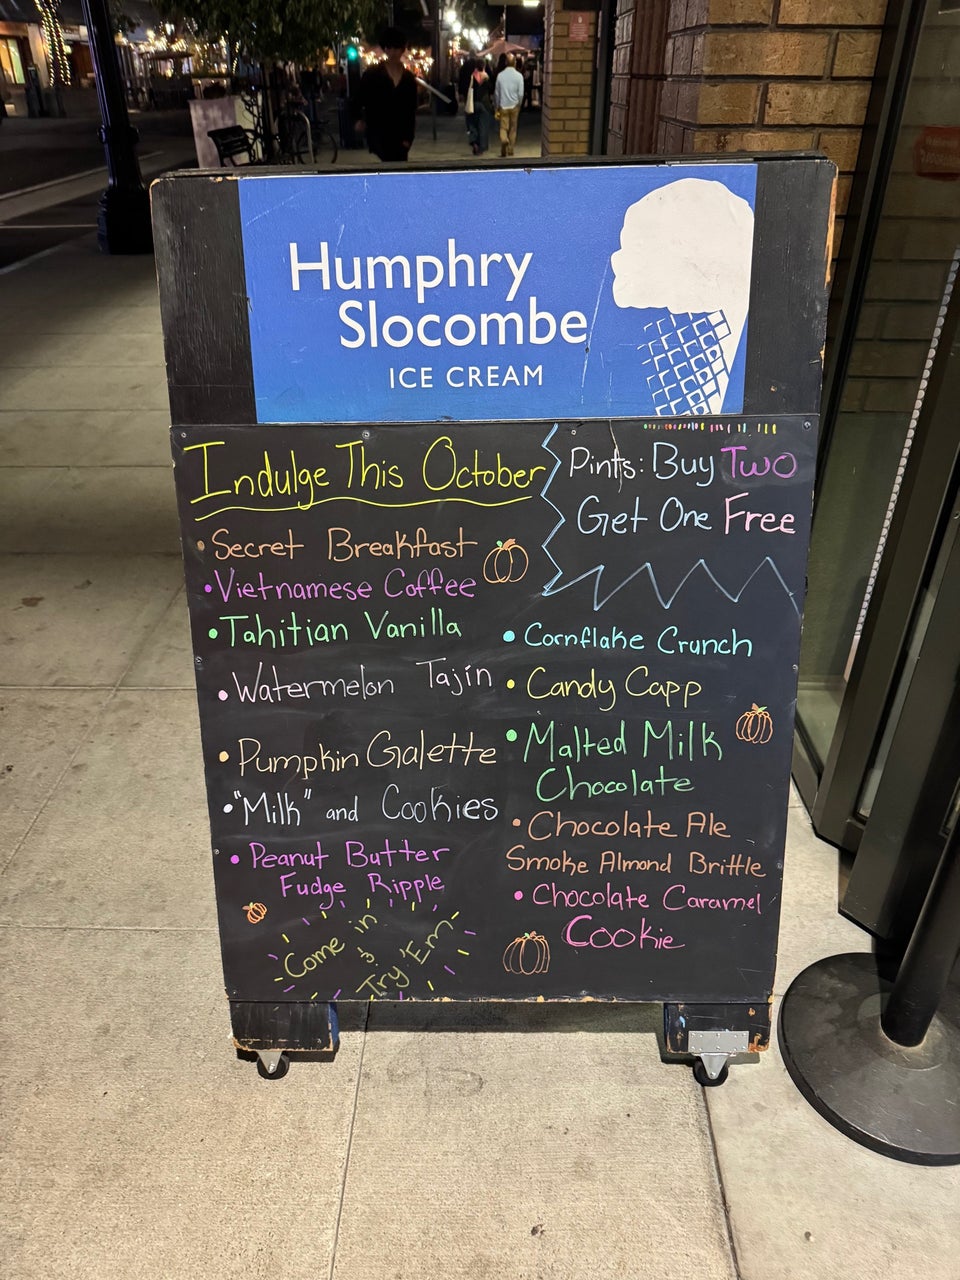 Humphry
Slocombe
ICE CREAM
Indulge This October
• Secret Breakfast
• Vietnamese Coffee
• Tahitian Vanilla
• Watermelon Tajín
• Pumpkin Galette
• "Milk" and Cookies
• Peanut Butter
Fudge Ripple
Come in
&
Try 'Em
Pints: Buy Two
Get One Free
• Cornflake Crunch
• Candy Capp
• Malted Milk
Chocolate
• Chocolate Ale
Smoke Almond Brittle
• Chocolate Caramel
Cookie